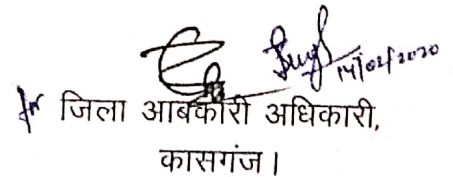 14/02/2020
जिला आबकारी अधिकारी,
कासगंज।